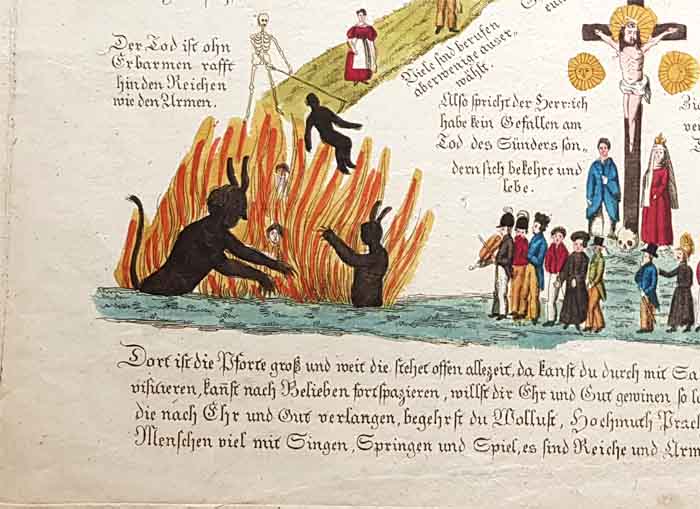 Der Tod ist ohn
Erbarmen rafft
hin den Reichen
wie den Armen.
Viele sind berufen
aber wenige auser„
wählt.
Also spricht der Herr: ich
habe kein Gefallen am
Tod des Sünders son„
dern sich bekehre und
lebe.
Dort ist die Pforte groß und weit die stehet offen allezeit, da kanst du durch mit Sa
visitieren, kañst nach Belieben fortspazieren, willst dir Ehr und Gut gewinen so
die nach Ehr und Gut verlangen, begehrst du Wollust, Hochmuth Prac
Menschen viel mit Singen, Springen und Spiel, es sind Reiche und Arm